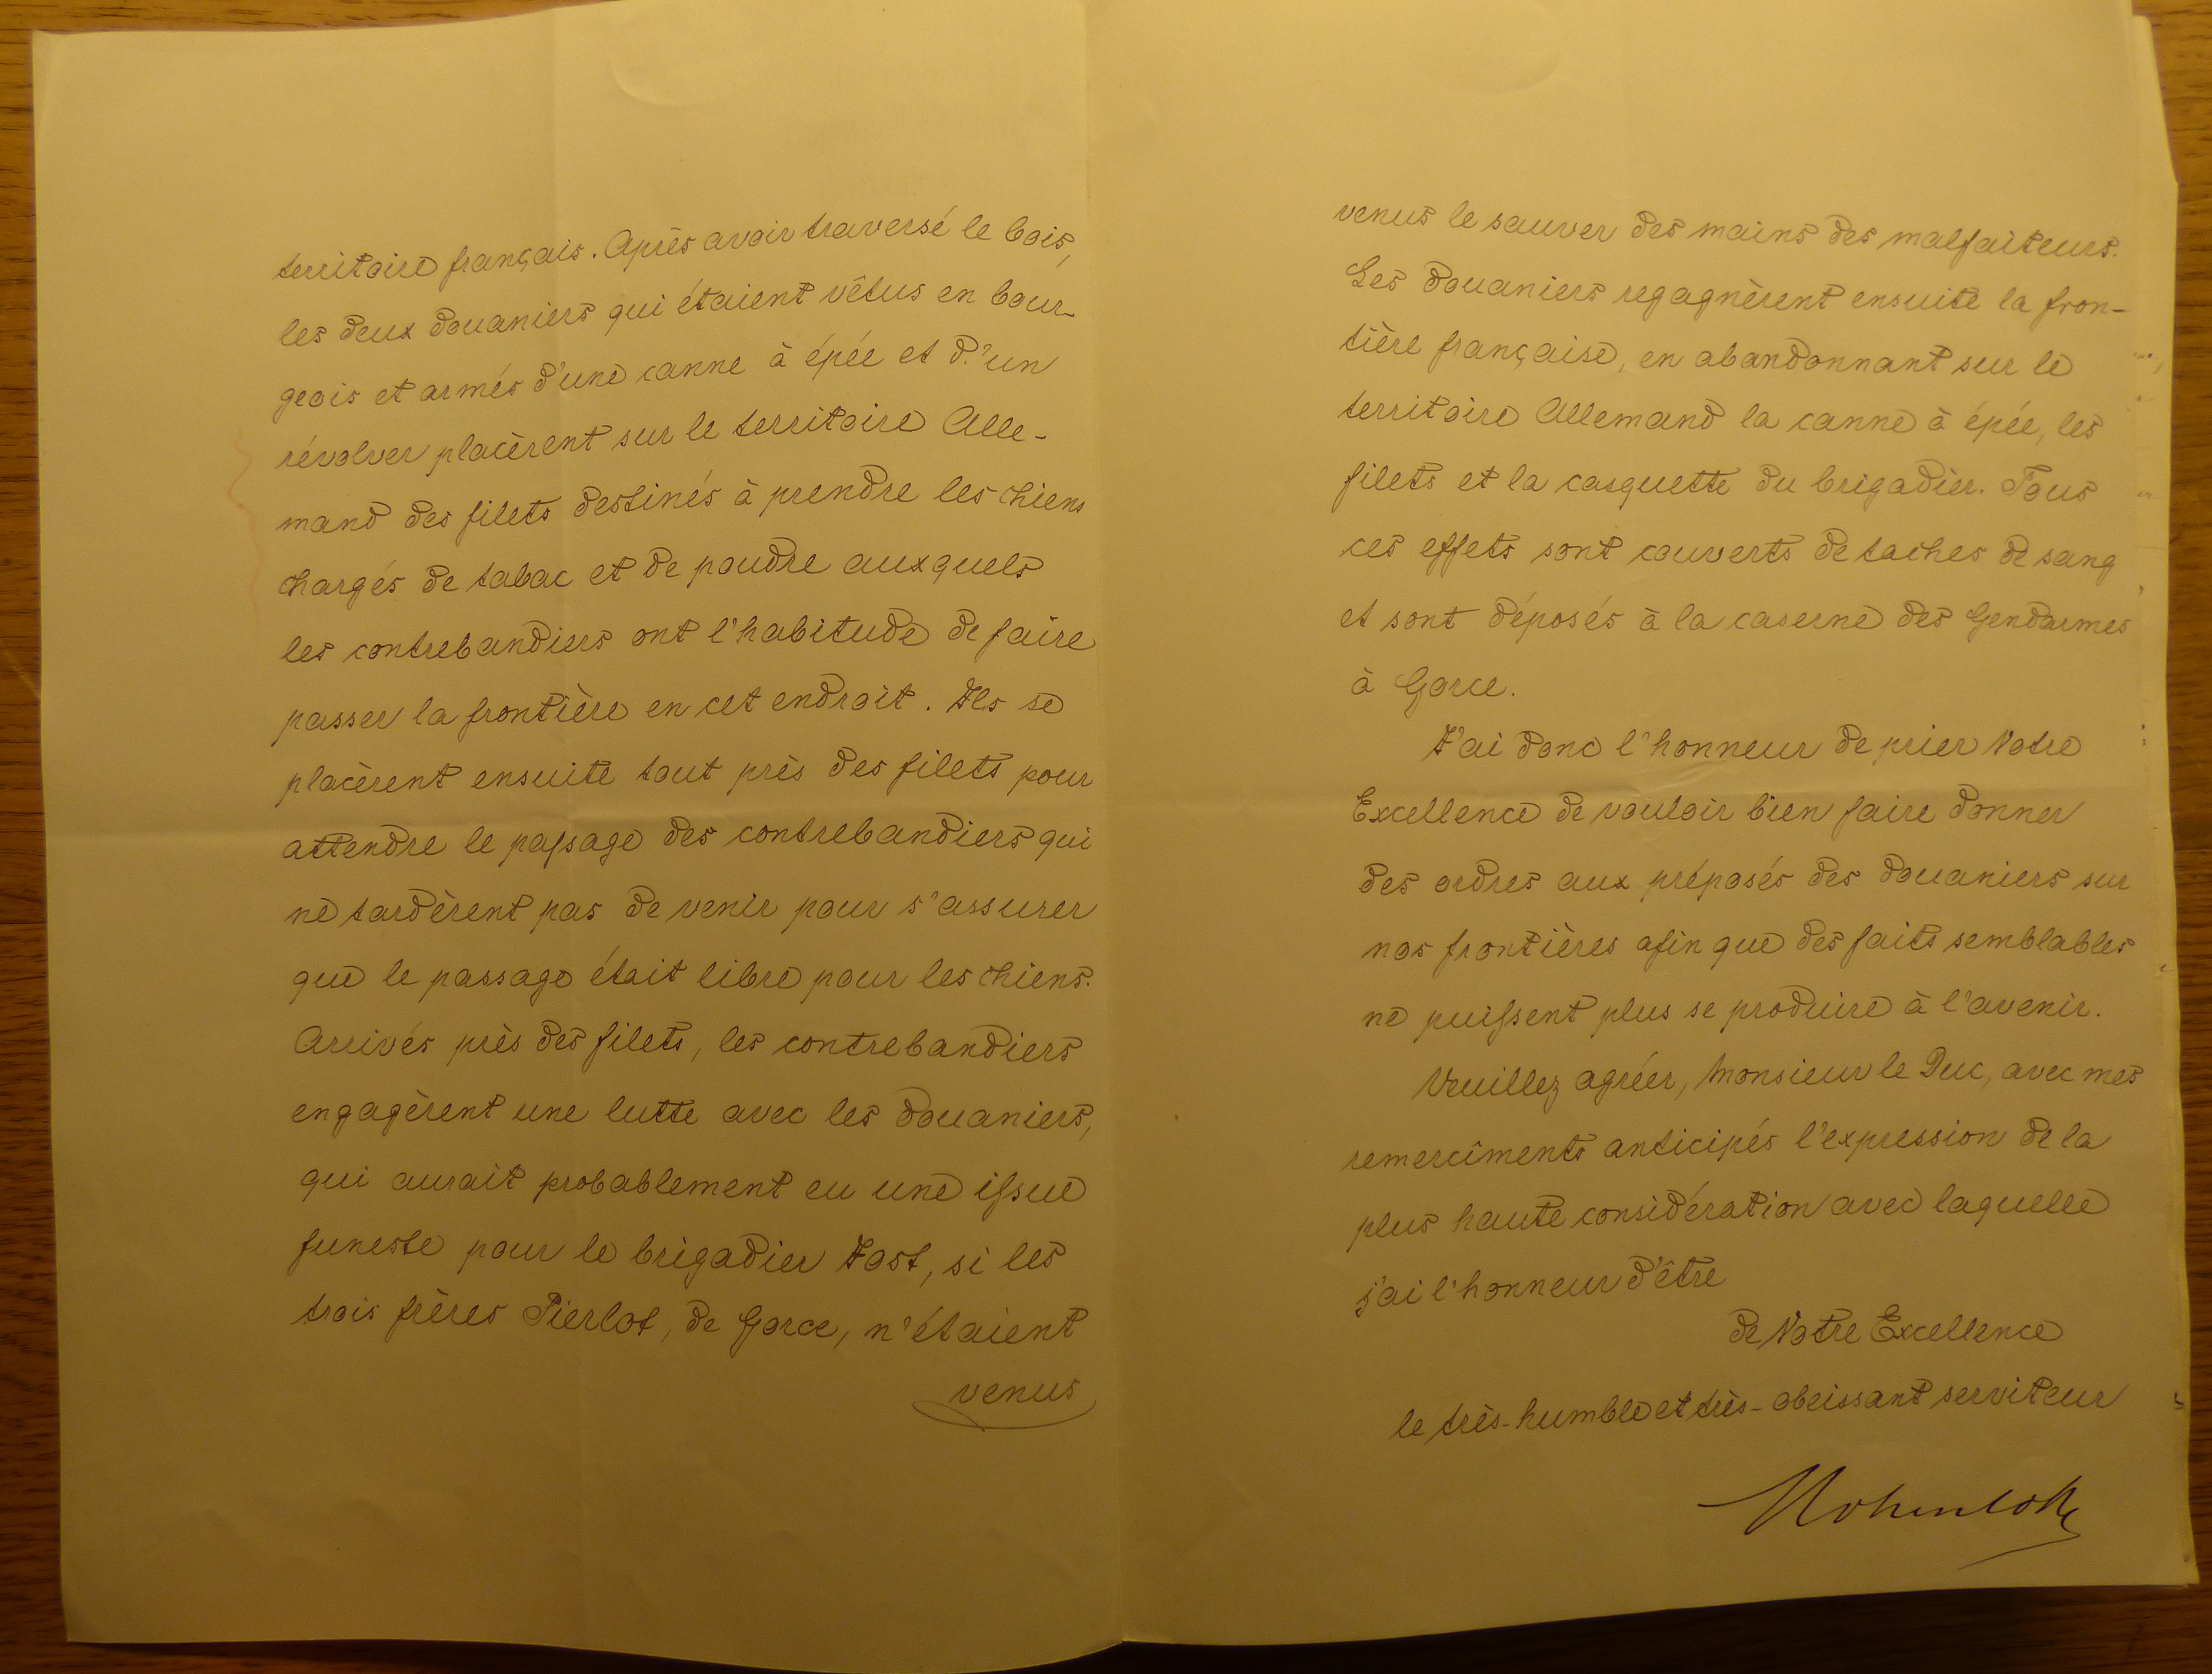 territoire français. Après avoir traversé le bois,
les deux douaniers qui étaient vêtus en bour-
geois et armés d'une canne à épée et d'un
révolver placèrent sur le territoire Alle-
mand des filets destinés à prendre les chiens
chargés de tabac et de poudre auxquels
les contrebandiers ont l'habitude de faire
passer la frontière en cet endroit. Ils se
placèrent ensuite tout près des filets pour
attendre le passage des contrebandiers qui
ne tardèrent pas de venir pour s'assurer
que le passage était libre pour les chiens.
Arrivés près des filets, les contrebandiers
engagèrent une lutte avec les douaniers,
qui aurait probablement eu une issue
funeste pour le brigadier Jost, si les
trois frères Pierlot, de Gorce, n'étaient
venus
venus le sauver des mains des malfaiteurs.
Les douaniers regagnèrent ensuite la fron-
tière française, en abandonnant sur le
territoire Allemand la canne à épée, les
filets et la casquette du brigadier. Tous
ces effets sont couverts de taches de sang
et sont déposés à la caserne des Gendarmes
à Gorce.
J'ai donc l'honneur de prier Votre
Excellence de vouloir bien faire donner
des ordres aux préposés des douaniers sur
nos frontières afin que des faits semblables
ne puissent plus se produire à l'avenir.
Veuillez agréer, Monsieur le Duc, avec mes
remercîments anticipés l'expression de la
plus haute considération avec laquelle
j'ai l'honneur d'être
de Votre Excellence
le très-humble et très-obeissant serviteur
Hohenlohe